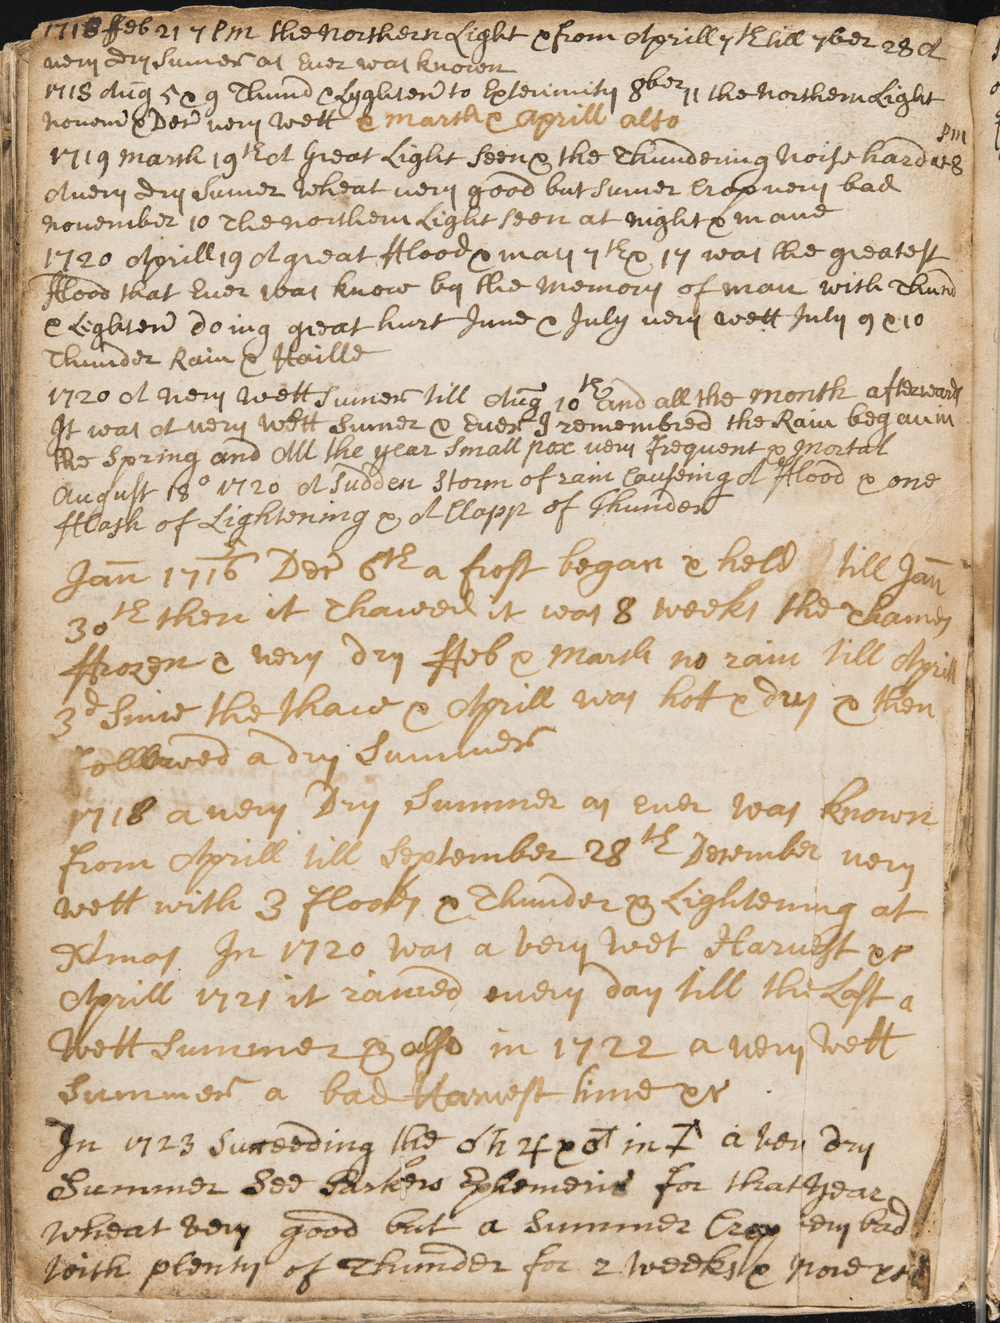 1718 ffeb 21 7 PM the Northern Light & from Aprill 7th till 7ber 28 A
very dry Sumer as Ever was known
1718 Aug 5 & 9 Thund & Lyghten to Exterimity 8ber 11 the Northern Light
Novem & Dec very wett & March & Aprill also
1719 March 19th A Great Light Seen & the Thundering Noise hard at 8 PM
A very dry Sumer Wheat very good but Sumer Crop very bad
November 10 The northern Light seen at night & mane
1720 Aprill 19 A great fflood & may 7th & 17 was the greatest
fflood that Ever was know by the Memory of man with Thund
& Lighten doing great hurt June & July very wett July 9 & 10
Thunder Rain & Haille
1720 A very wett Sumer till Aug 10th and all the month afterward
It was A very wett Sumer & Ever I remembred the Rain began in
the Spring and All the year Small pox very Frequent & Mortal
August 18o 1720 A Sudden Storm of rain Causeing A fflood & one
fflash of Lightening & A Clapp of Thunder
Jan 1716 Dec 6th a frost began & held till Jan
30th then it Thawed it was 8 weeks the Thames
ffrozen & very dry ffeb & March no rain till Aprill
3d Since the thaw & Aprill was hott & dry & then
Followed a dry Summer
1718 a very Dry Summer as Ever was known
from Aprill till September 28th December very
wett with 3 floods & Thunder & Lightening at
Xtmas In 1720 was a very wet Harvest &c
Aprill 1721 it rained every day till the Last a
Wett Summer & also in 1722 a very Wett
Summer a bad Harvest time &c
In 1723 Succeeding the ☌ ♄ ♃ & ♂ in ♐ a very dry
Summer See Parkers Ephemeris for that year
wheat very good but a Summer Crop very bad
with plenty of Thunder for 2 weeks & more